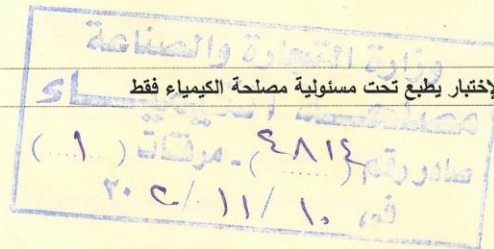 وزارة التجارة والصناعة
لإختبار يطبع تحت مسئولية مصلحة الكيمياء فقط
مصلحة الكيمياء
صادر رقم (٤٨١٤) - مرفقات (١)
فى ١٠ / ١١ / ٢٠٢